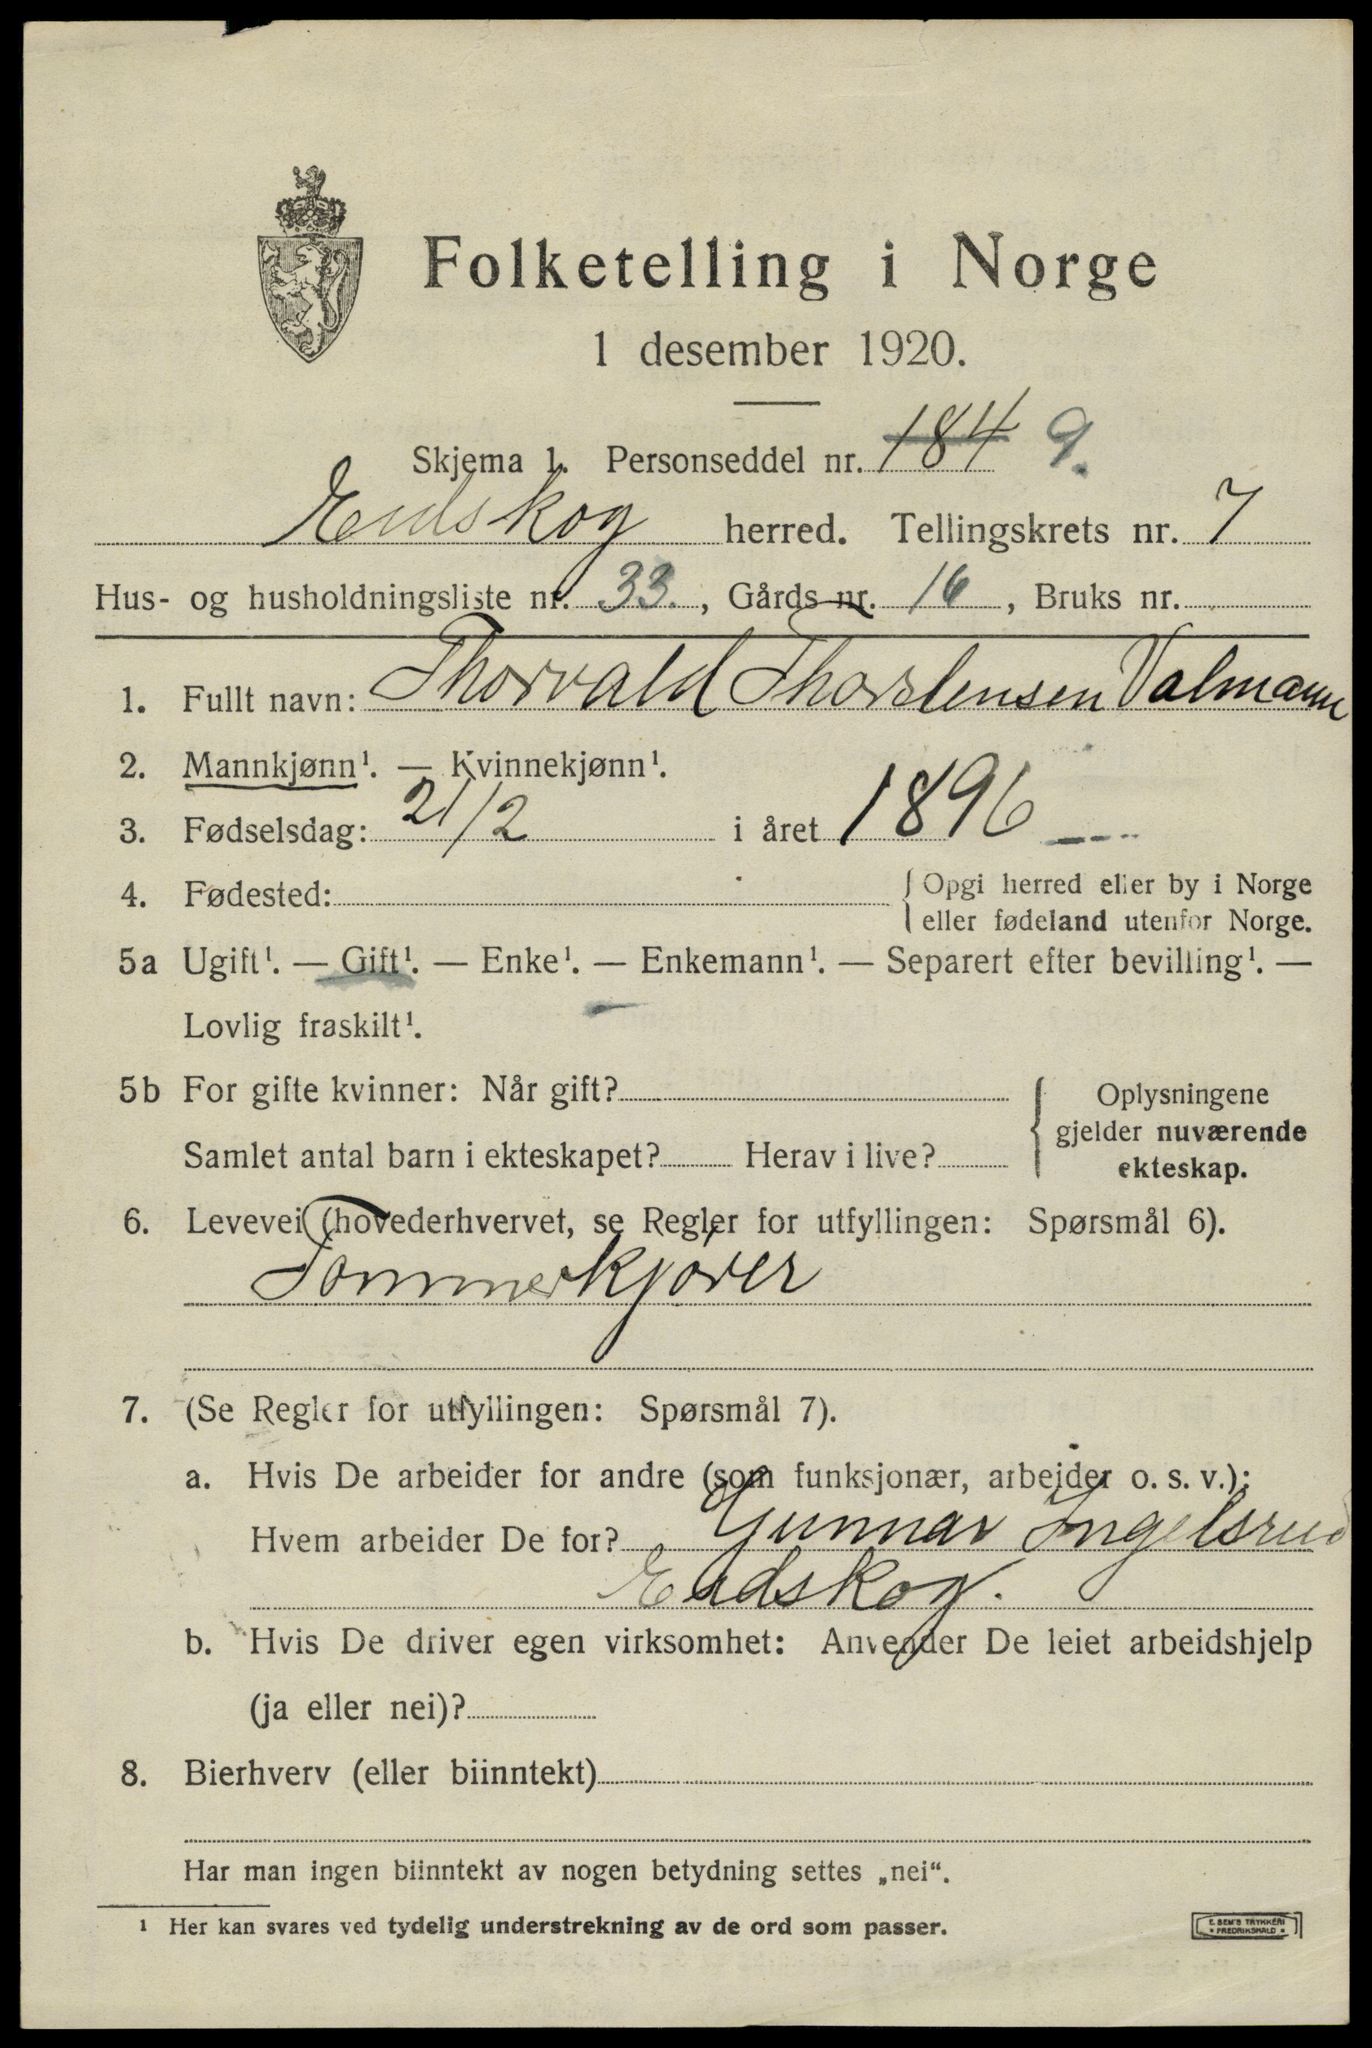 Folketelling i Norge
1 desember 1920.
Skjema 1. Personseddel nr. 184 9.
Eidskog herred. Tellingskrets nr. 7
Hus- og husholdningsliste nr. 33. , Gårds nr. 16 , Bruks nr.
1. Fullt navn: Thorvald Thorstensen Valmann
2. Mannkjønn¹. — Kvinnekjønn¹.
3. Fødselsdag: 21/2 i året 1896
4. Fødested: { Opgi herred eller by i Norge
eller fødeland utenfor Norge.
5a Ugift¹. — Gift¹. — Enke¹. — Enkemann¹. — Separert efter bevilling¹. —
Lovlig fraskilt¹.
5b For gifte kvinner: Når gift?
Samlet antal barn i ekteskapet? Herav i live?
{ Oplysningene
gjelder nuværende
ekteskap.
6. Levevei (hovederhvervet, se Regler for utfyllingen: Spørsmål 6).
Tømmerkjører
7. (Se Regler for utfyllingen: Spørsmål 7).
a. Hvis De arbeider for andre (som funksjonær, arbeider o. s. v.):
Hvem arbeider De for? Gunnar Ingelsrud
Eidskog.
b. Hvis De driver egen virksomhet: Anvender De leiet arbeidshjelp
(ja eller nei)?
8. Bierhverv (eller biinntekt)
Har man ingen biinntekt av nogen betydning settes „nei“.
¹ Her kan svares ved tydelig understrekning av de ord som passer.
E. SEM'S TRYKKERI
* FREDRIKSHALD *